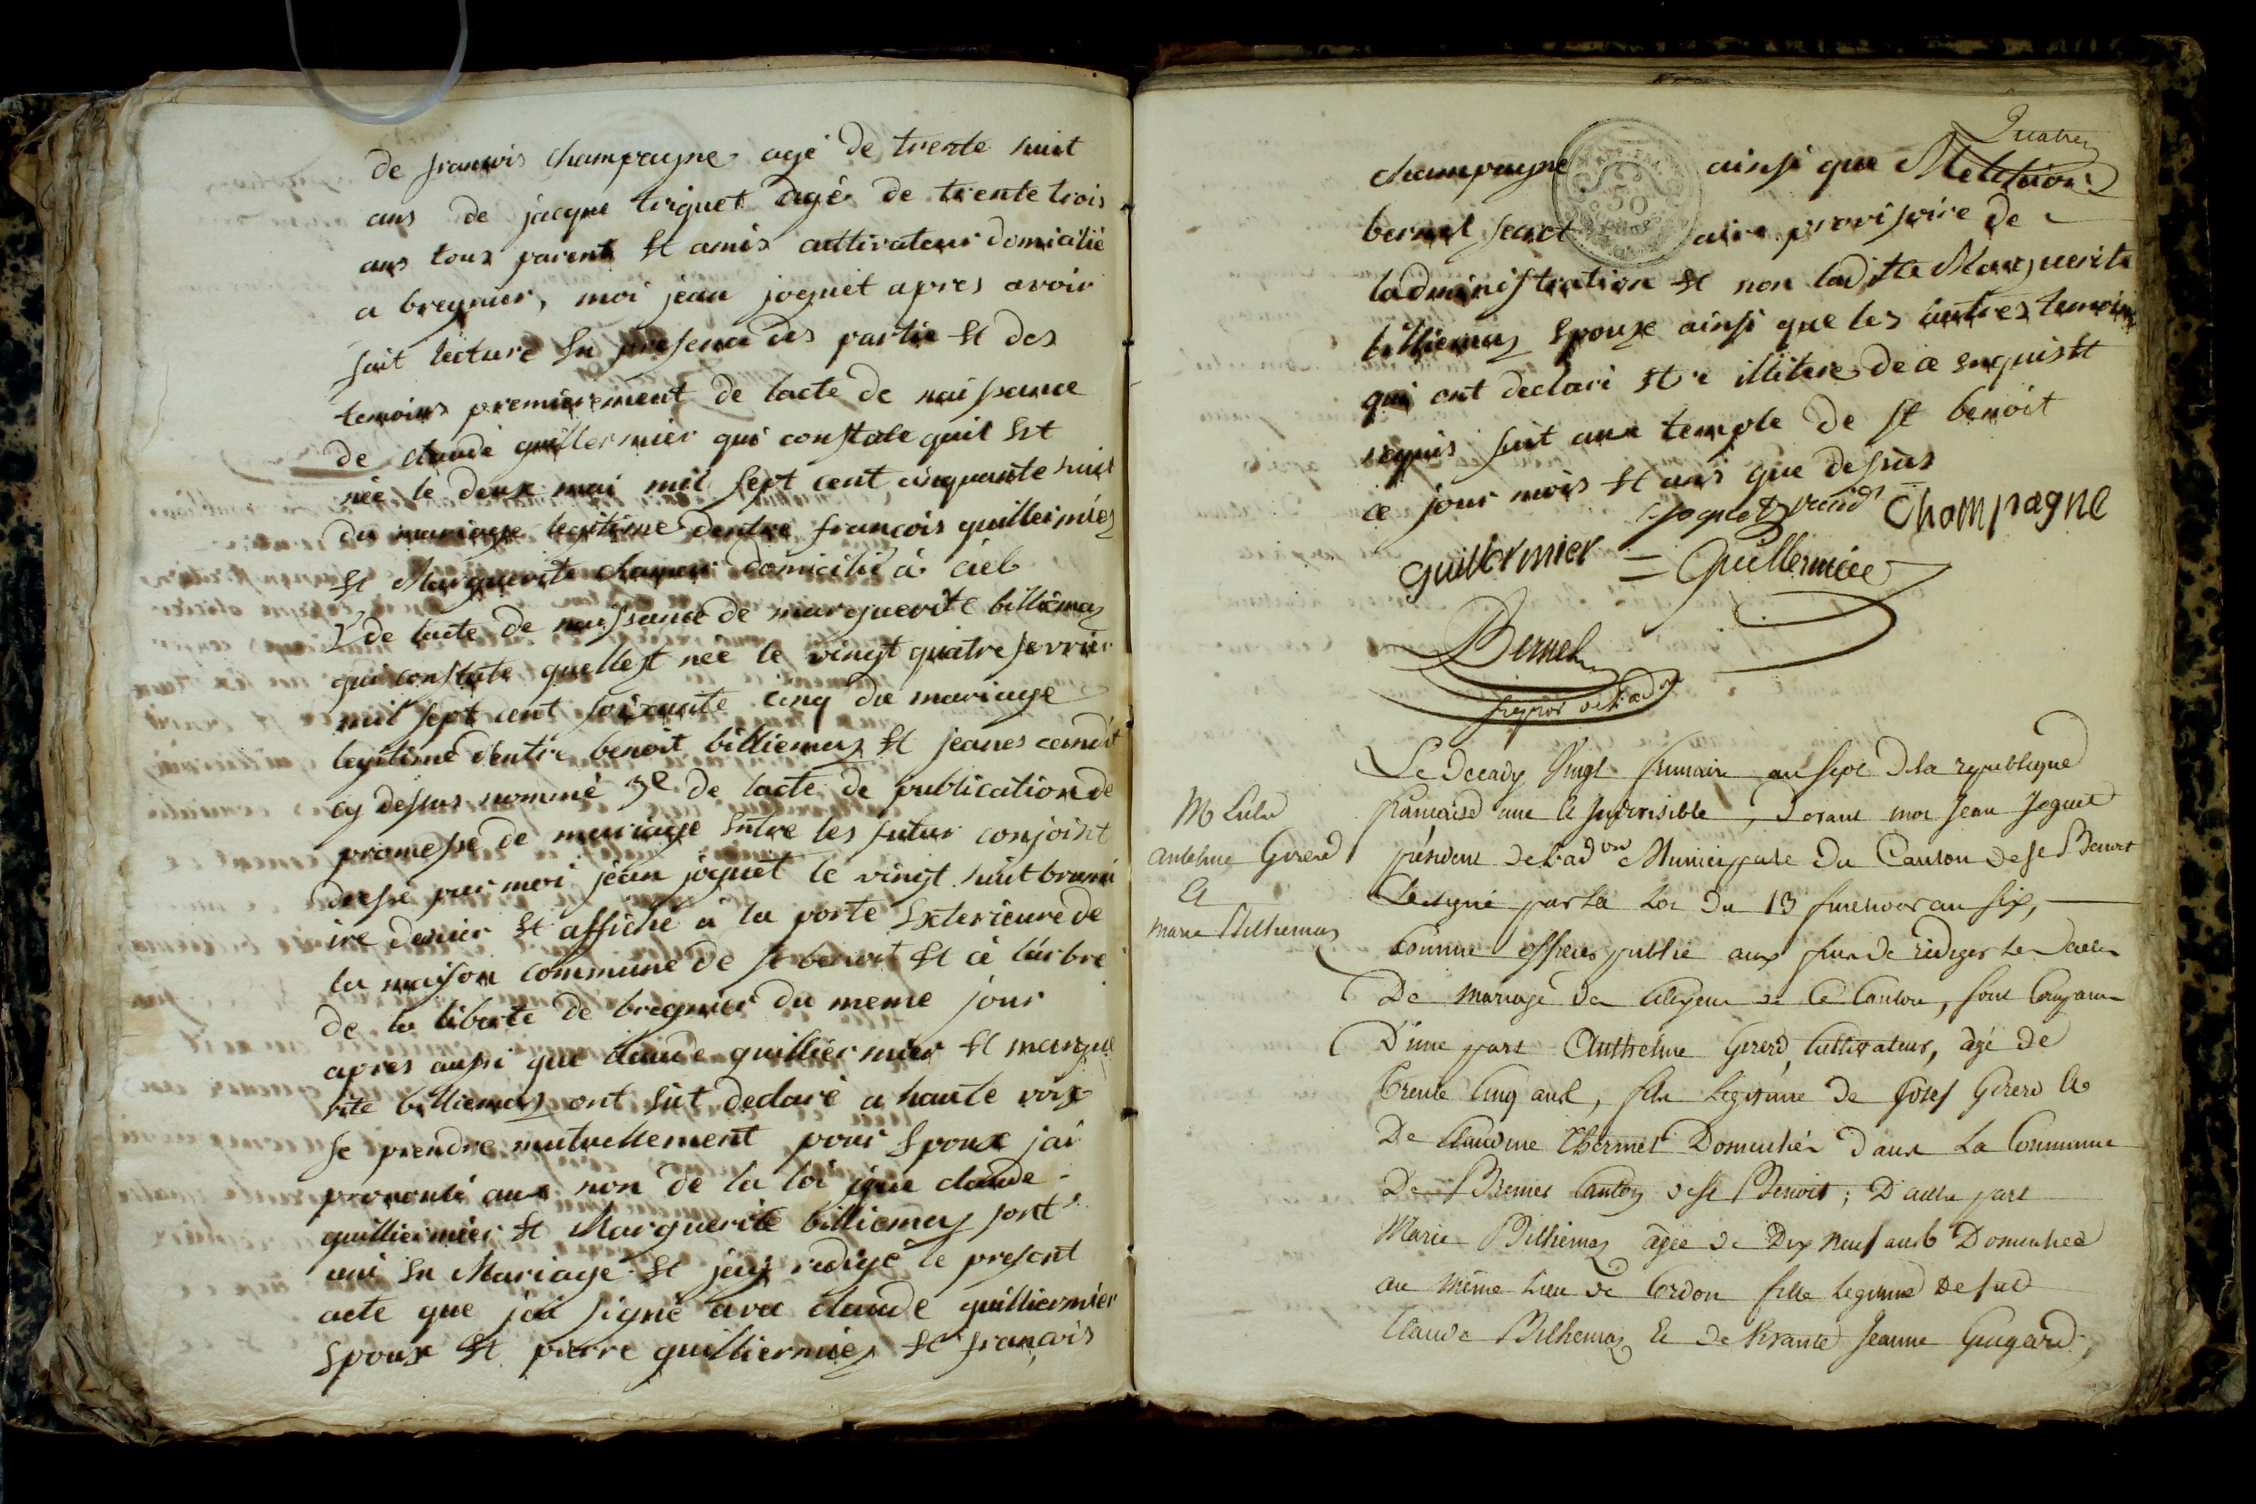 de francois champagne agé de trente huit
ans de jacque trignet agé de trente trois
ans tous parent et amis cultivateur domicilié
a bregnier, moi jean joguet apres avoir
fait lecture en presence des partie et des
temoins premierement de lacte de naissance
de claude guilliermier qui constate quil est
née le deux mai mil sept cent cinquante huit
du mariage legitime dentre francois guillermiez
et Marguerite domicilié à ciel
2º de lacte de naissance de marguerite billiemaz
qui constate quellest née le vingt quatre fevrier
mil sept cent soixante cinq du mariage
legitime dentre benoit billiemaz et jeanes
cy dessus nommé 3e de lacte de publication de
promesse de mariage entre les futur conjoint
dressé par moi jean joguet le vingt huit brumi
ire denier et affiché à la porte exterieure de
la maison commune de st benoit et à larbre
de la liberté de bregnier du meme jour
apres aussi que claude guilliermier et margue
rite billiemaz ont eut declaré a haute voix
se prendre mutuellement pour epoux jai
prononcé aux non de la loi que claude
guilliermier et Marguerite billiemaz sont
uni en Mariage et jai redigé le present
acte que jai signé avec claude guilliermier
epoux et pierre guilliermiez et francois
Quatre
champagne ainsi que
bernel secret aire provisoire de
ladministration et non laditte Marguerite
billiemaz epouse ainsi que les autres temoins
qui ont declaré etre illitere de ce enquis et
requis fait aux temple de st benoit
ce jour mois et ans que dessus
joguet presidt Champagne
Guillermier = Guillermiée
Bernel
Le Decady Vingt frimaire an sept de la republique
francaise une et Indivisible, devant moi Jean Joguet
président de l'adon Municipale du Canton de st Benoit
Designé par la Loi du 13 fructidor an six,
Comme officier public aux fins de rédiger les actes
De mariage des Citoyens de ce Canton, sont Comparu
D'une part Anthelme Girerd, Cultivateur, âgé de
trente Cinq ans, fils légitime de Josef Girerd et
De Claudine Chermet Domiciliés dans la Commune
De Bremes Canton de st Benoit; D'autre part
Marie Billiemaz agée de Dix neuf ans Domiciliée
au même lieu de Cordon fille legitime de feu
Claude Billiemaz et de vivante Jeanne Guigard,
M
antelme Girerd
Et
Marie Billiemaz